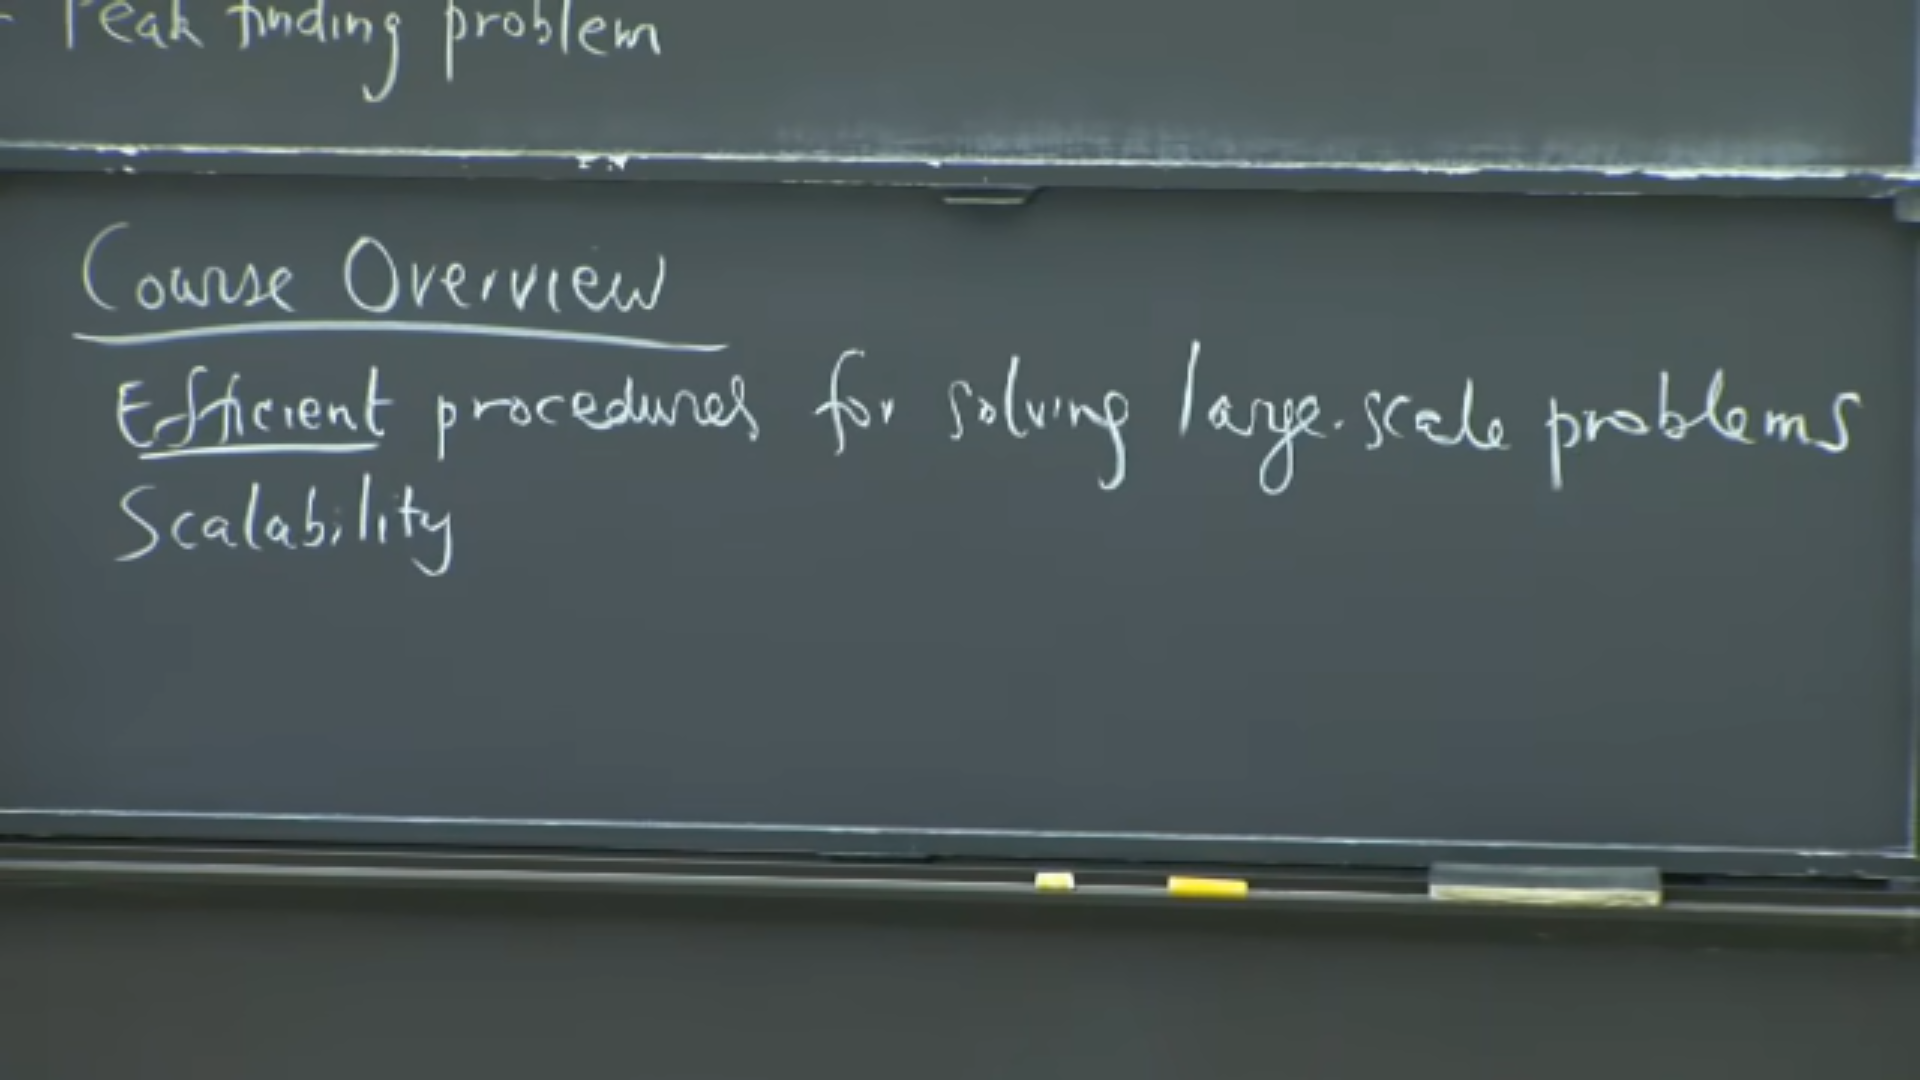 - Peak finding problem
Course Overview
Efficient procedures for solving large-scale problems
Scalability